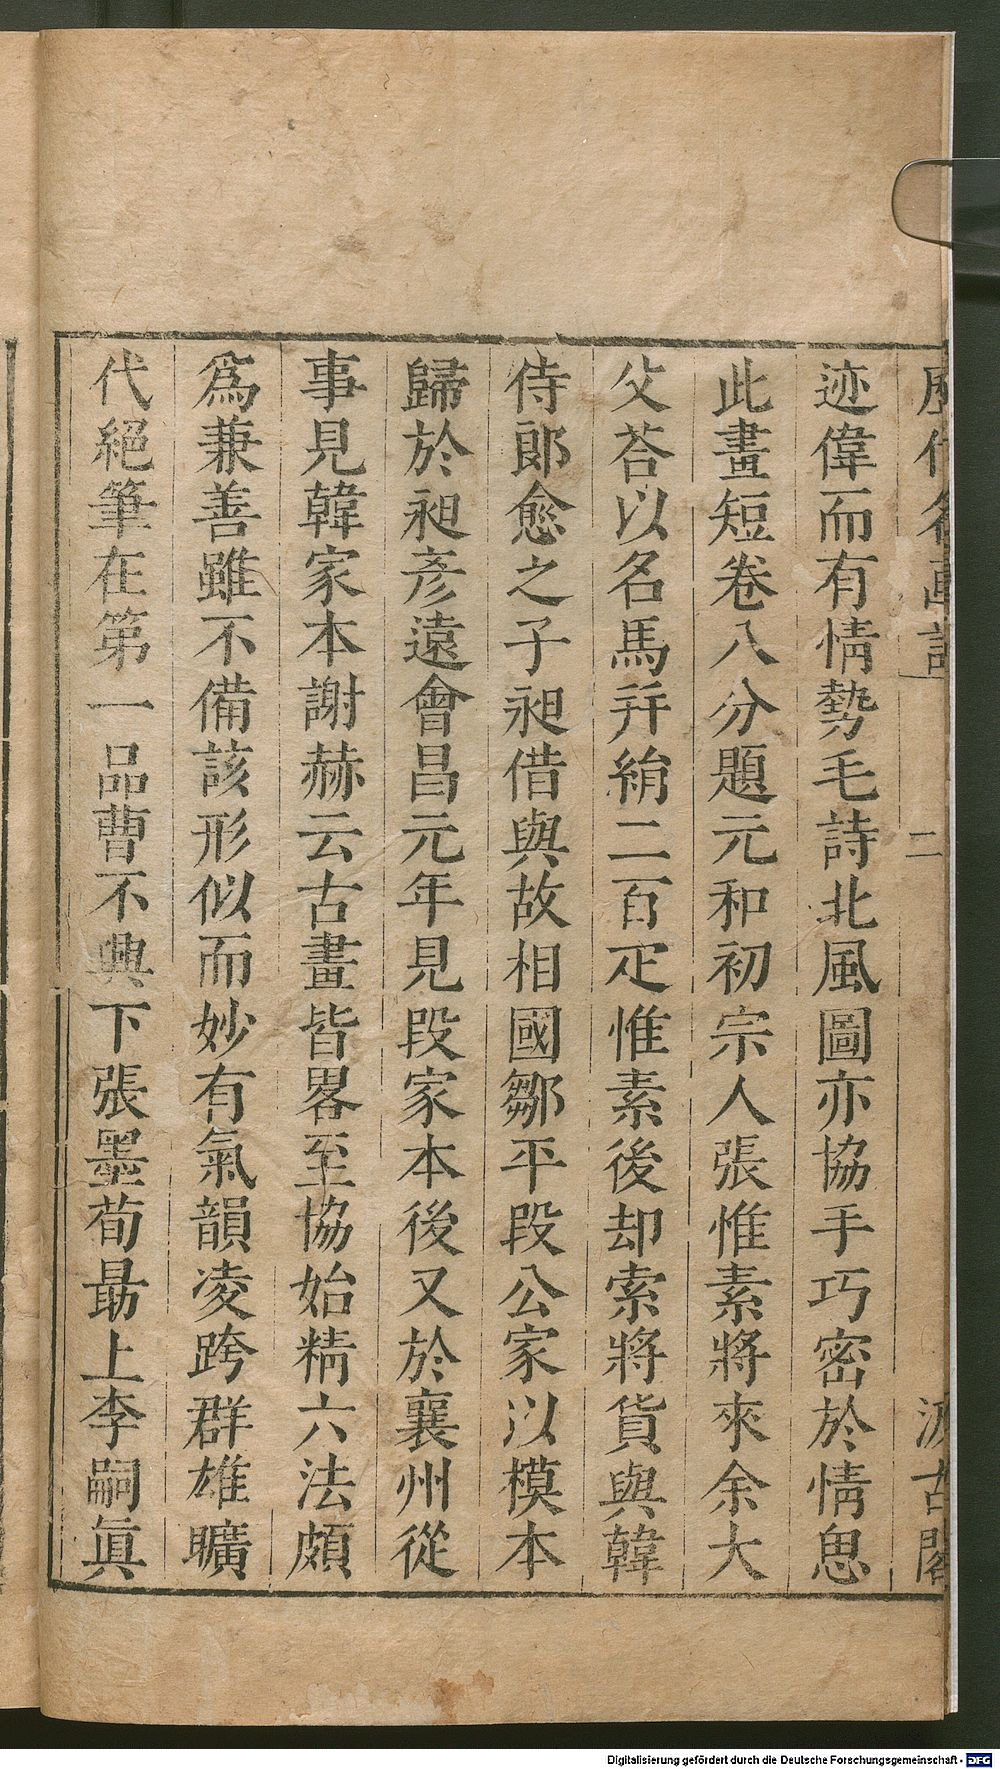 歷代名畫記
二
汲古閣
迹偉而有情勢毛詩北風圖亦協手巧密於情思
此畫短卷八分題元和初宗人張惟素將來余大
父荅以名馬并絹二百疋惟素後却索將貨與韓
侍郎愈之子昶借與故相國鄒平段公家以模本
歸於昶彥遠會昌元年見段家本後又於襄州從
事見韓家本謝赫云古畫皆畧至協始精六法頗
爲兼善雖不備該形似而妙有氣韻凌跨群雄曠
代絕筆在第一品曹不興下張墨荀勗上李嗣眞
Digitalisierung gefördert durch die Deutsche Forschungsgemeinschaft - DFG